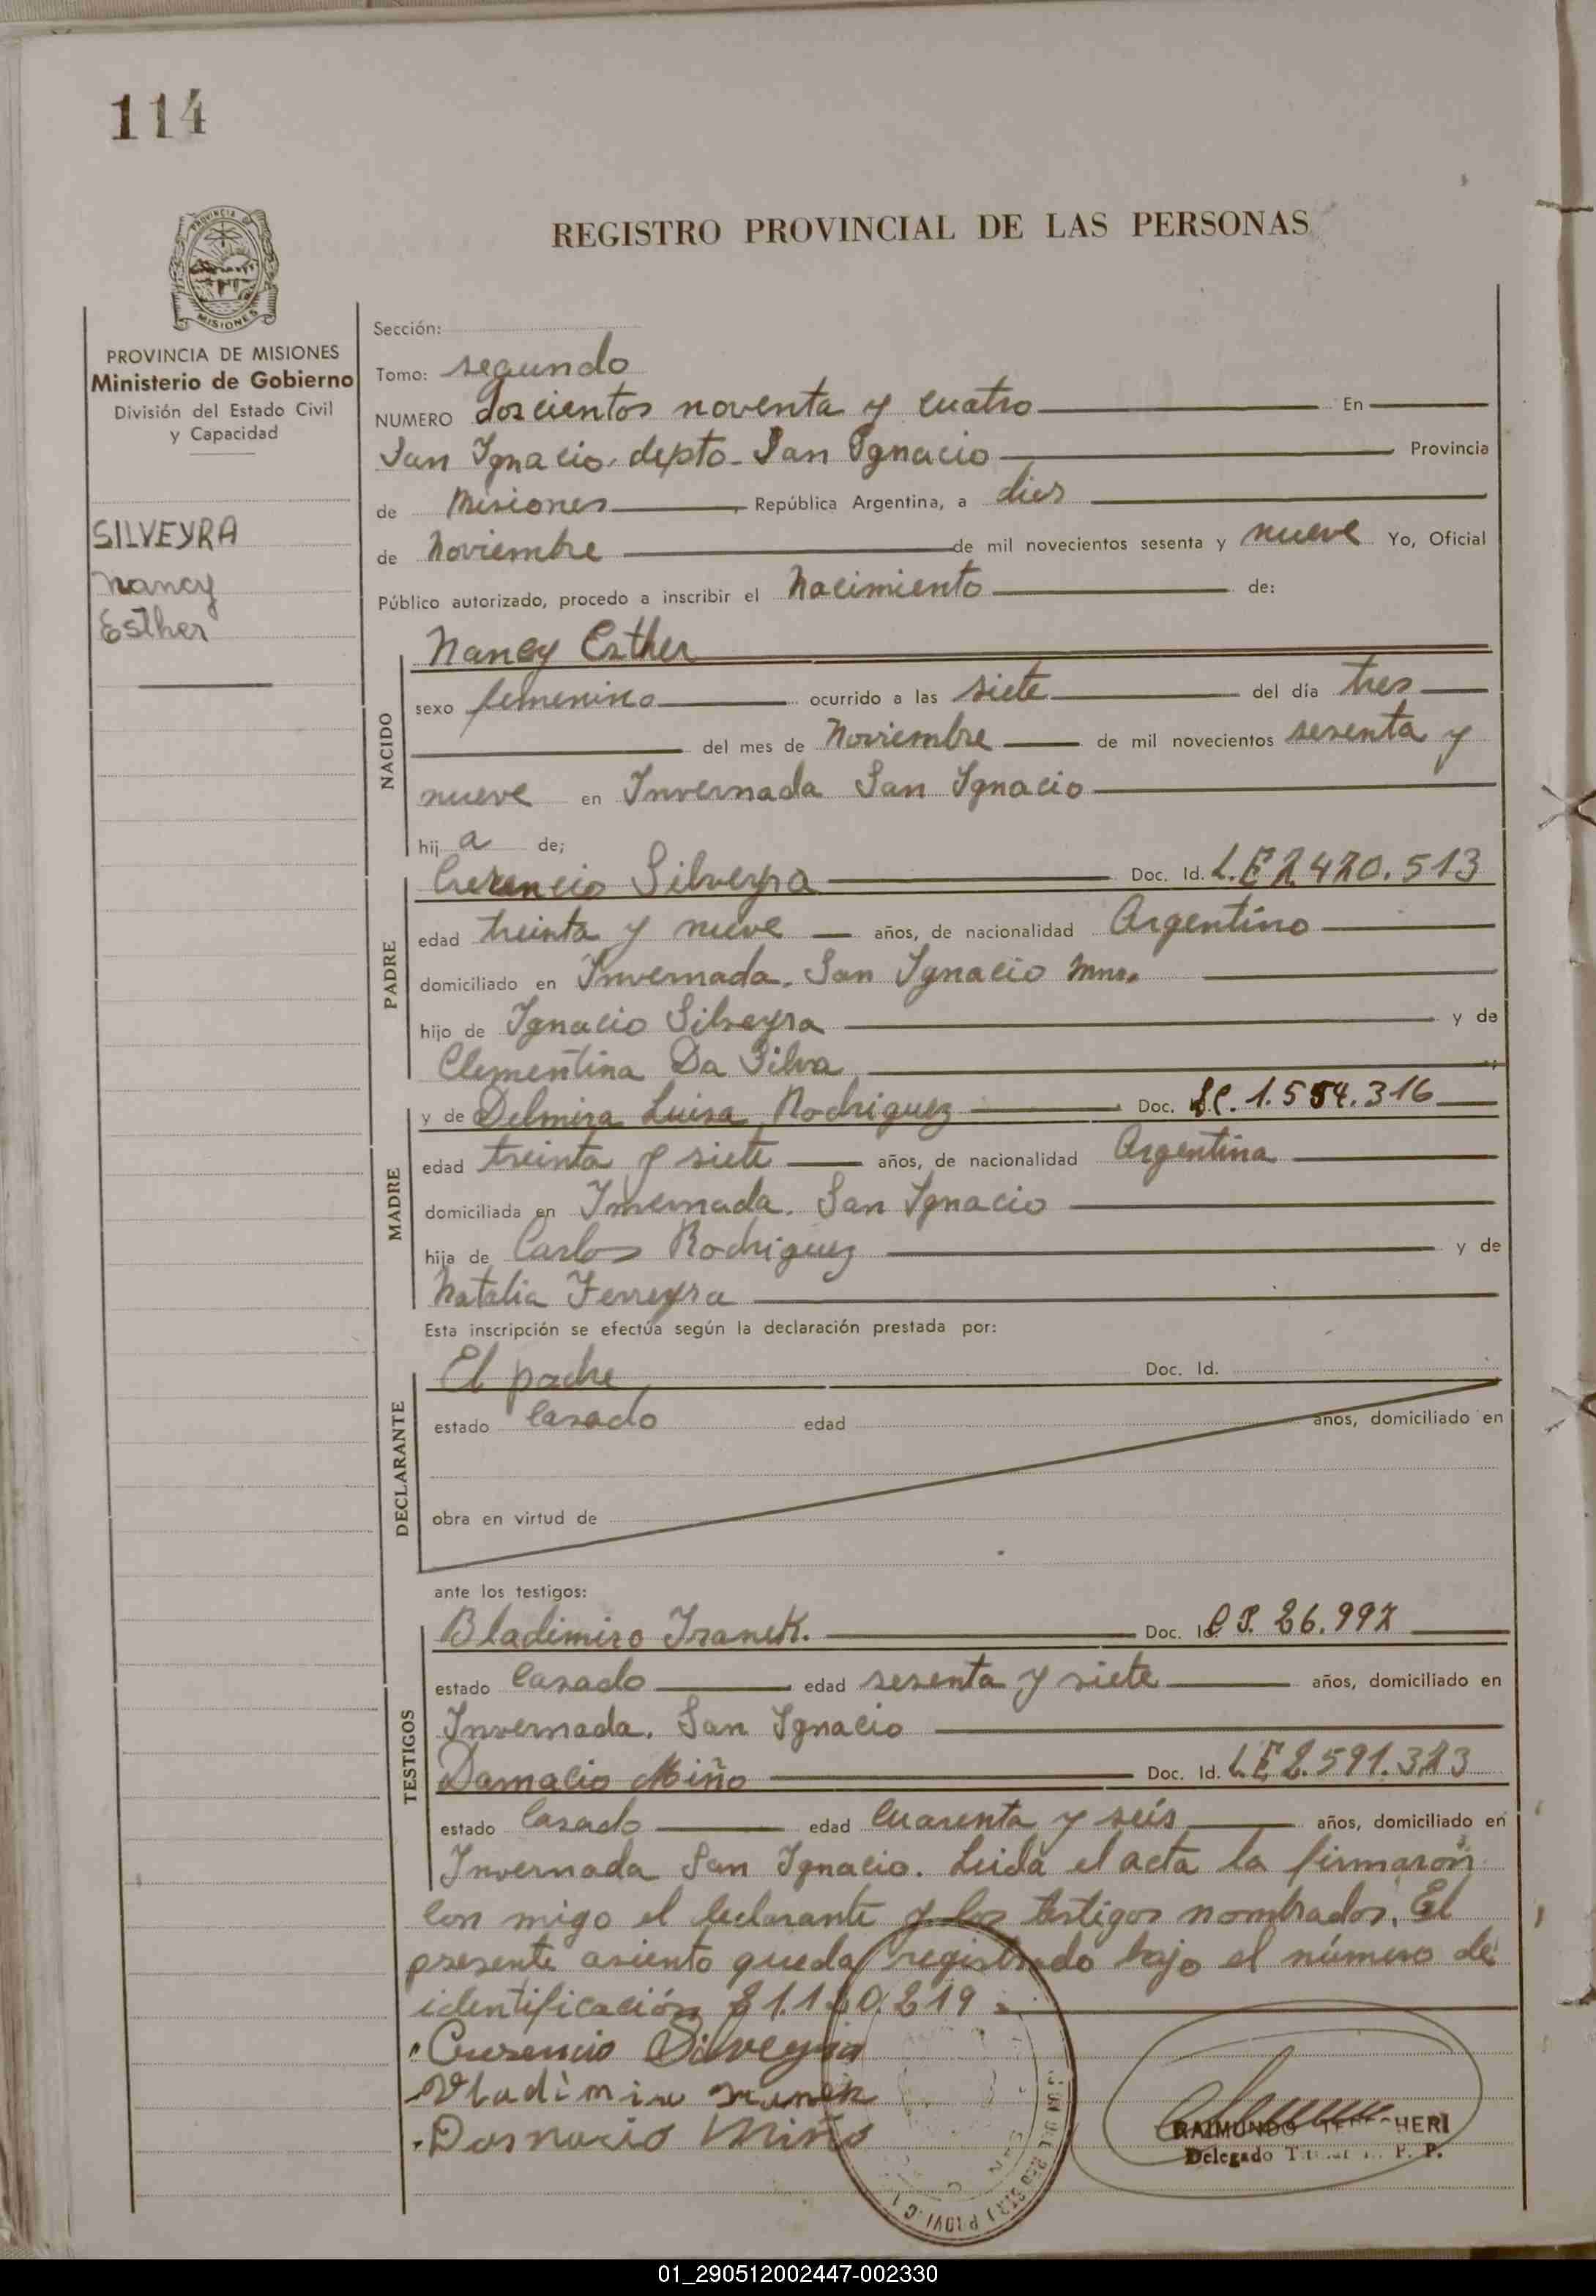 114
REGISTRO PROVINCIAL DE LAS PERSONAS
PROVINCIA DE MISIONES
Ministerio de Gobierno
División del Estado Civil
y Capacidad
SILVEYRA
Nancy
Esther
Sección:
Tomo: segundo
NUMERO doscientos noventa y cuatro En
San Ignacio. depto. San Ignacio Provincia
de Misiones República Argentina, a dies
de Noviembre de mil novecientos sesenta y nueve Yo, Oficial
Público autorizado, procedo a inscribir el Nacimiento de:
NACIDO
Nancy Esther
sexo femenino ocurrido a las siete del día tres
del mes de Noviembre de mil novecientos sesenta y
nueve en Invernada San Ignacio
hij a de;
PADRE
Silveyra Doc. Id. L.E
edad treinta y nueve años, de nacionalidad Argentino
domiciliado en Invernada. San Ignacio Mnes.
hijo de Ignacio Silveyra y de
Clementina Da Silva
MADRE
y de Delmira Luisa Rodriguez Doc. 1.554.316
edad treinta y siete años, de nacionalidad Argentina
domiciliada en Invernada. San Ignacio
hija de Carlos Rodriguez y de
Natalia Ferreyra
Esta inscripción se efectúa según la declaración prestada por:
DECLARANTE
El padre Doc. Id.
estado Casado edad años, domiciliado en
obra en virtud de
ante los testigos:
TESTIGOS
Bladimiro Doc. Id.
estado Casado edad sesenta y siete años, domiciliado en
Invernada. San Ignacio
Damacio Miño Doc. Id. L.E
estado Casado edad Cuarenta y seis años, domiciliado en
Invernada San Ignacio. Leida el acta la firmaron
con migo el declarante y los testigos nombrados. El
presente asiento queda registrado bajo el número de
identificación
Cresencio Silveyra
Vladimiro
Damacio Miño
RAIMUNDO
Delegado
01_290512002447-002330